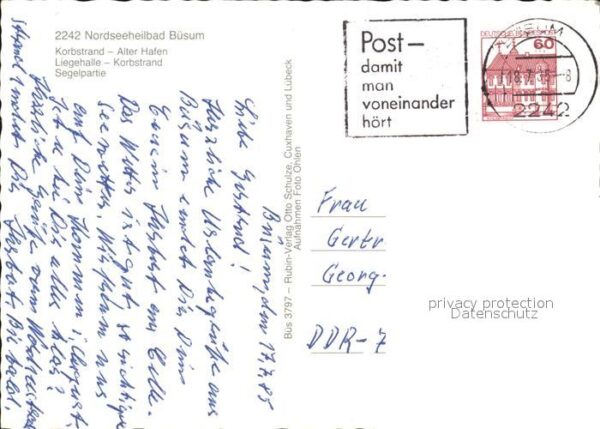 2242 Nordseeheilbad Büsum
Korbstrand – Alter Hafen
Liegehalle – Korbstrand
Segelpartie
Post –
damit
man
voneinander
hört
DEUTSCHE BUNDESPOST
60
BÜSUM
18.7.85 – 8
2242
Büs 3797 – Rubin-Verlag Otto Schulze, Cuxhaven und Lübeck
Aufnahmen Foto Ohlen
Büsum, den 17.7.85
Liebe
Herzliche Urlaubsgrüße aus
Büsum sendet Dir Dein
aus Celle.
Das Wetter ist gut, so richtiges
Seewetter. Wir freuen uns
auf Dein Kommen i. August.
bei Dir alles klar?
Herzliche Grüße vom Nordsee
Dir Bis bald!
Frau
Gertr
Georg.
DDR-7
privacy protection
Datenschutz